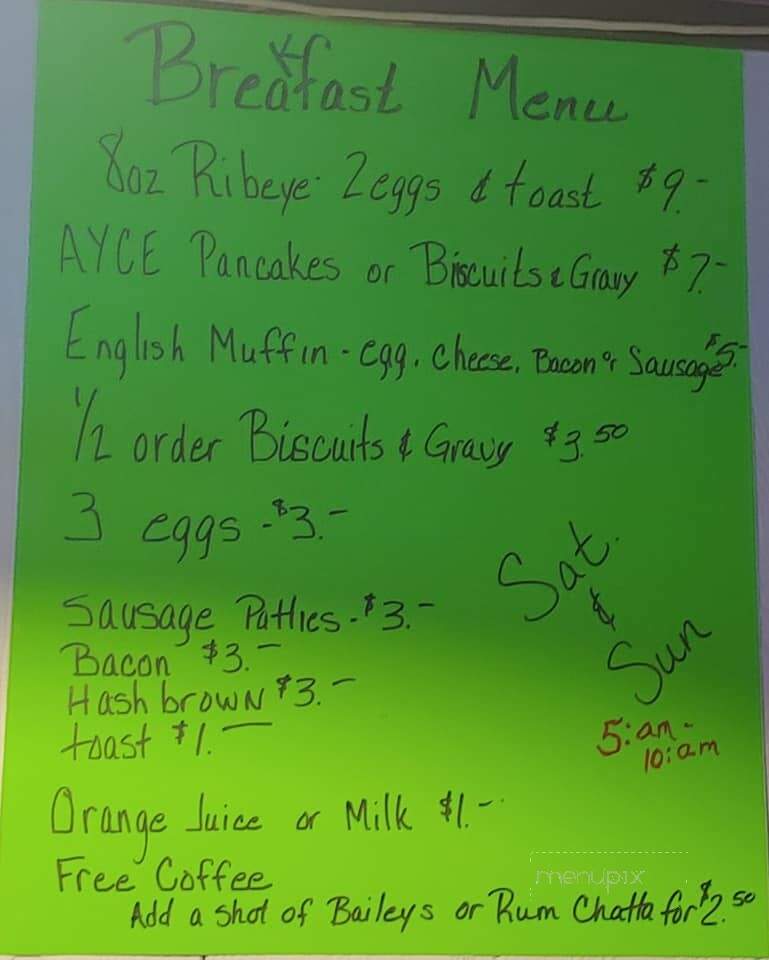 Breakfast Menu
8oz Ribeye · 2 eggs & toast $9.-
AYCE Pancakes or Biscuits & Gravy $7.-
English Muffin - egg, cheese, Bacon or Sausage $5.-
1/2 order Biscuits & Gravy $3.50
3 eggs - $3.-
Sat.
&
Sun
Sausage Patties - $3.-
Bacon $3.-
Hash brown $3.-
toast $1.-
5:am -
10:am
Orange Juice or Milk $1.-
Free Coffee
menupix
Add a shot of Baileys or Rum Chatta for $2.50